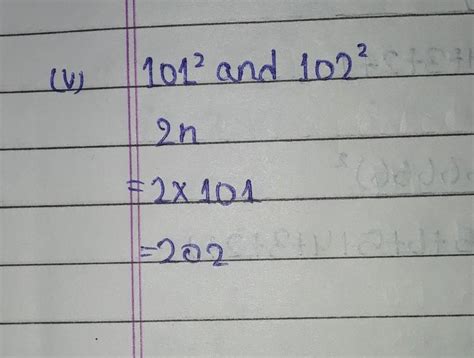 (V) 101² and 102²
2n
=2×101
=202